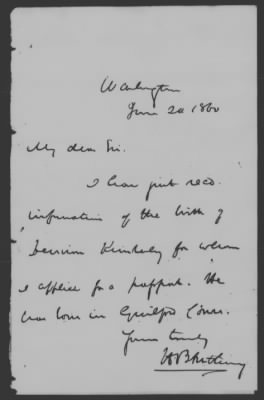 Washington
June 20 1860
My dear Sir.
I have just recd.
information of the birth of
Kimberly for whom
I applied for a passport. He
was born in Guilford Conn.
Yours truly